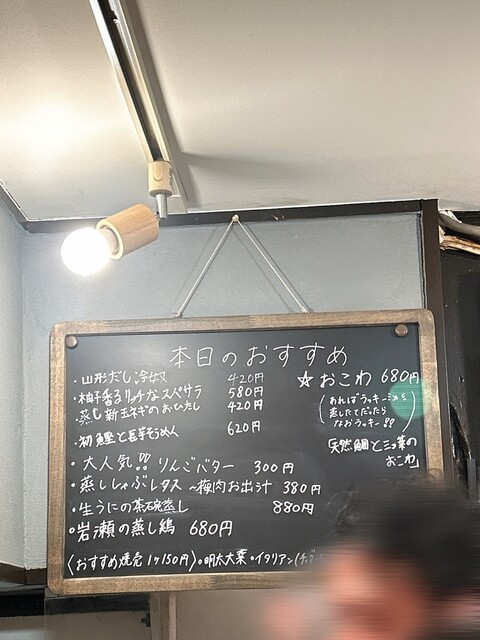 本日のおすすめ
・山形だし冷奴 420円
・柚子香るリッチなスペサラ 580円
蒸し新玉ネギのおひたし 420円
・初鰹と長芋そうめん 620円
・大人気!! りんごバター 300円
・蒸ししゃぶレタス ~梅肉お出汁 380円
・生うにの茶碗蒸し 880円
・岩瀬の蒸し鶏 680円
〈おすすめ焼売 1ヶ150円〉・明太大葉・イタリアン
☆おこわ 680円
あればラッキー
蒸したてだったら
なおラッキー!!
「天然鯛と三つ葉の
おこわ」